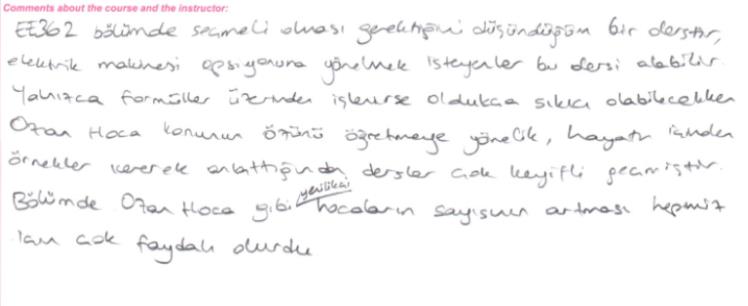 Comments about the course and the instructor:
EE362 bölümde seçmeli olması gerektiğini düşündüğüm bir derstir,
elektrik makinesi opsiyonuna yönelmek isteyenler bu dersi alabilir.
Yalnızca formüller üzerinden işlenirse oldukça sıkıcı olabilecekken
Ozan Hoca konunun özünü öğretmeye yönelik, hayatın içinden
örnekler vererek anlattığından dersler çok keyifli geçmiştir.
Bölümde Ozan Hoca gibi yenilikçi hocaların sayısının artması hepimiz
için çok faydalı olurdu